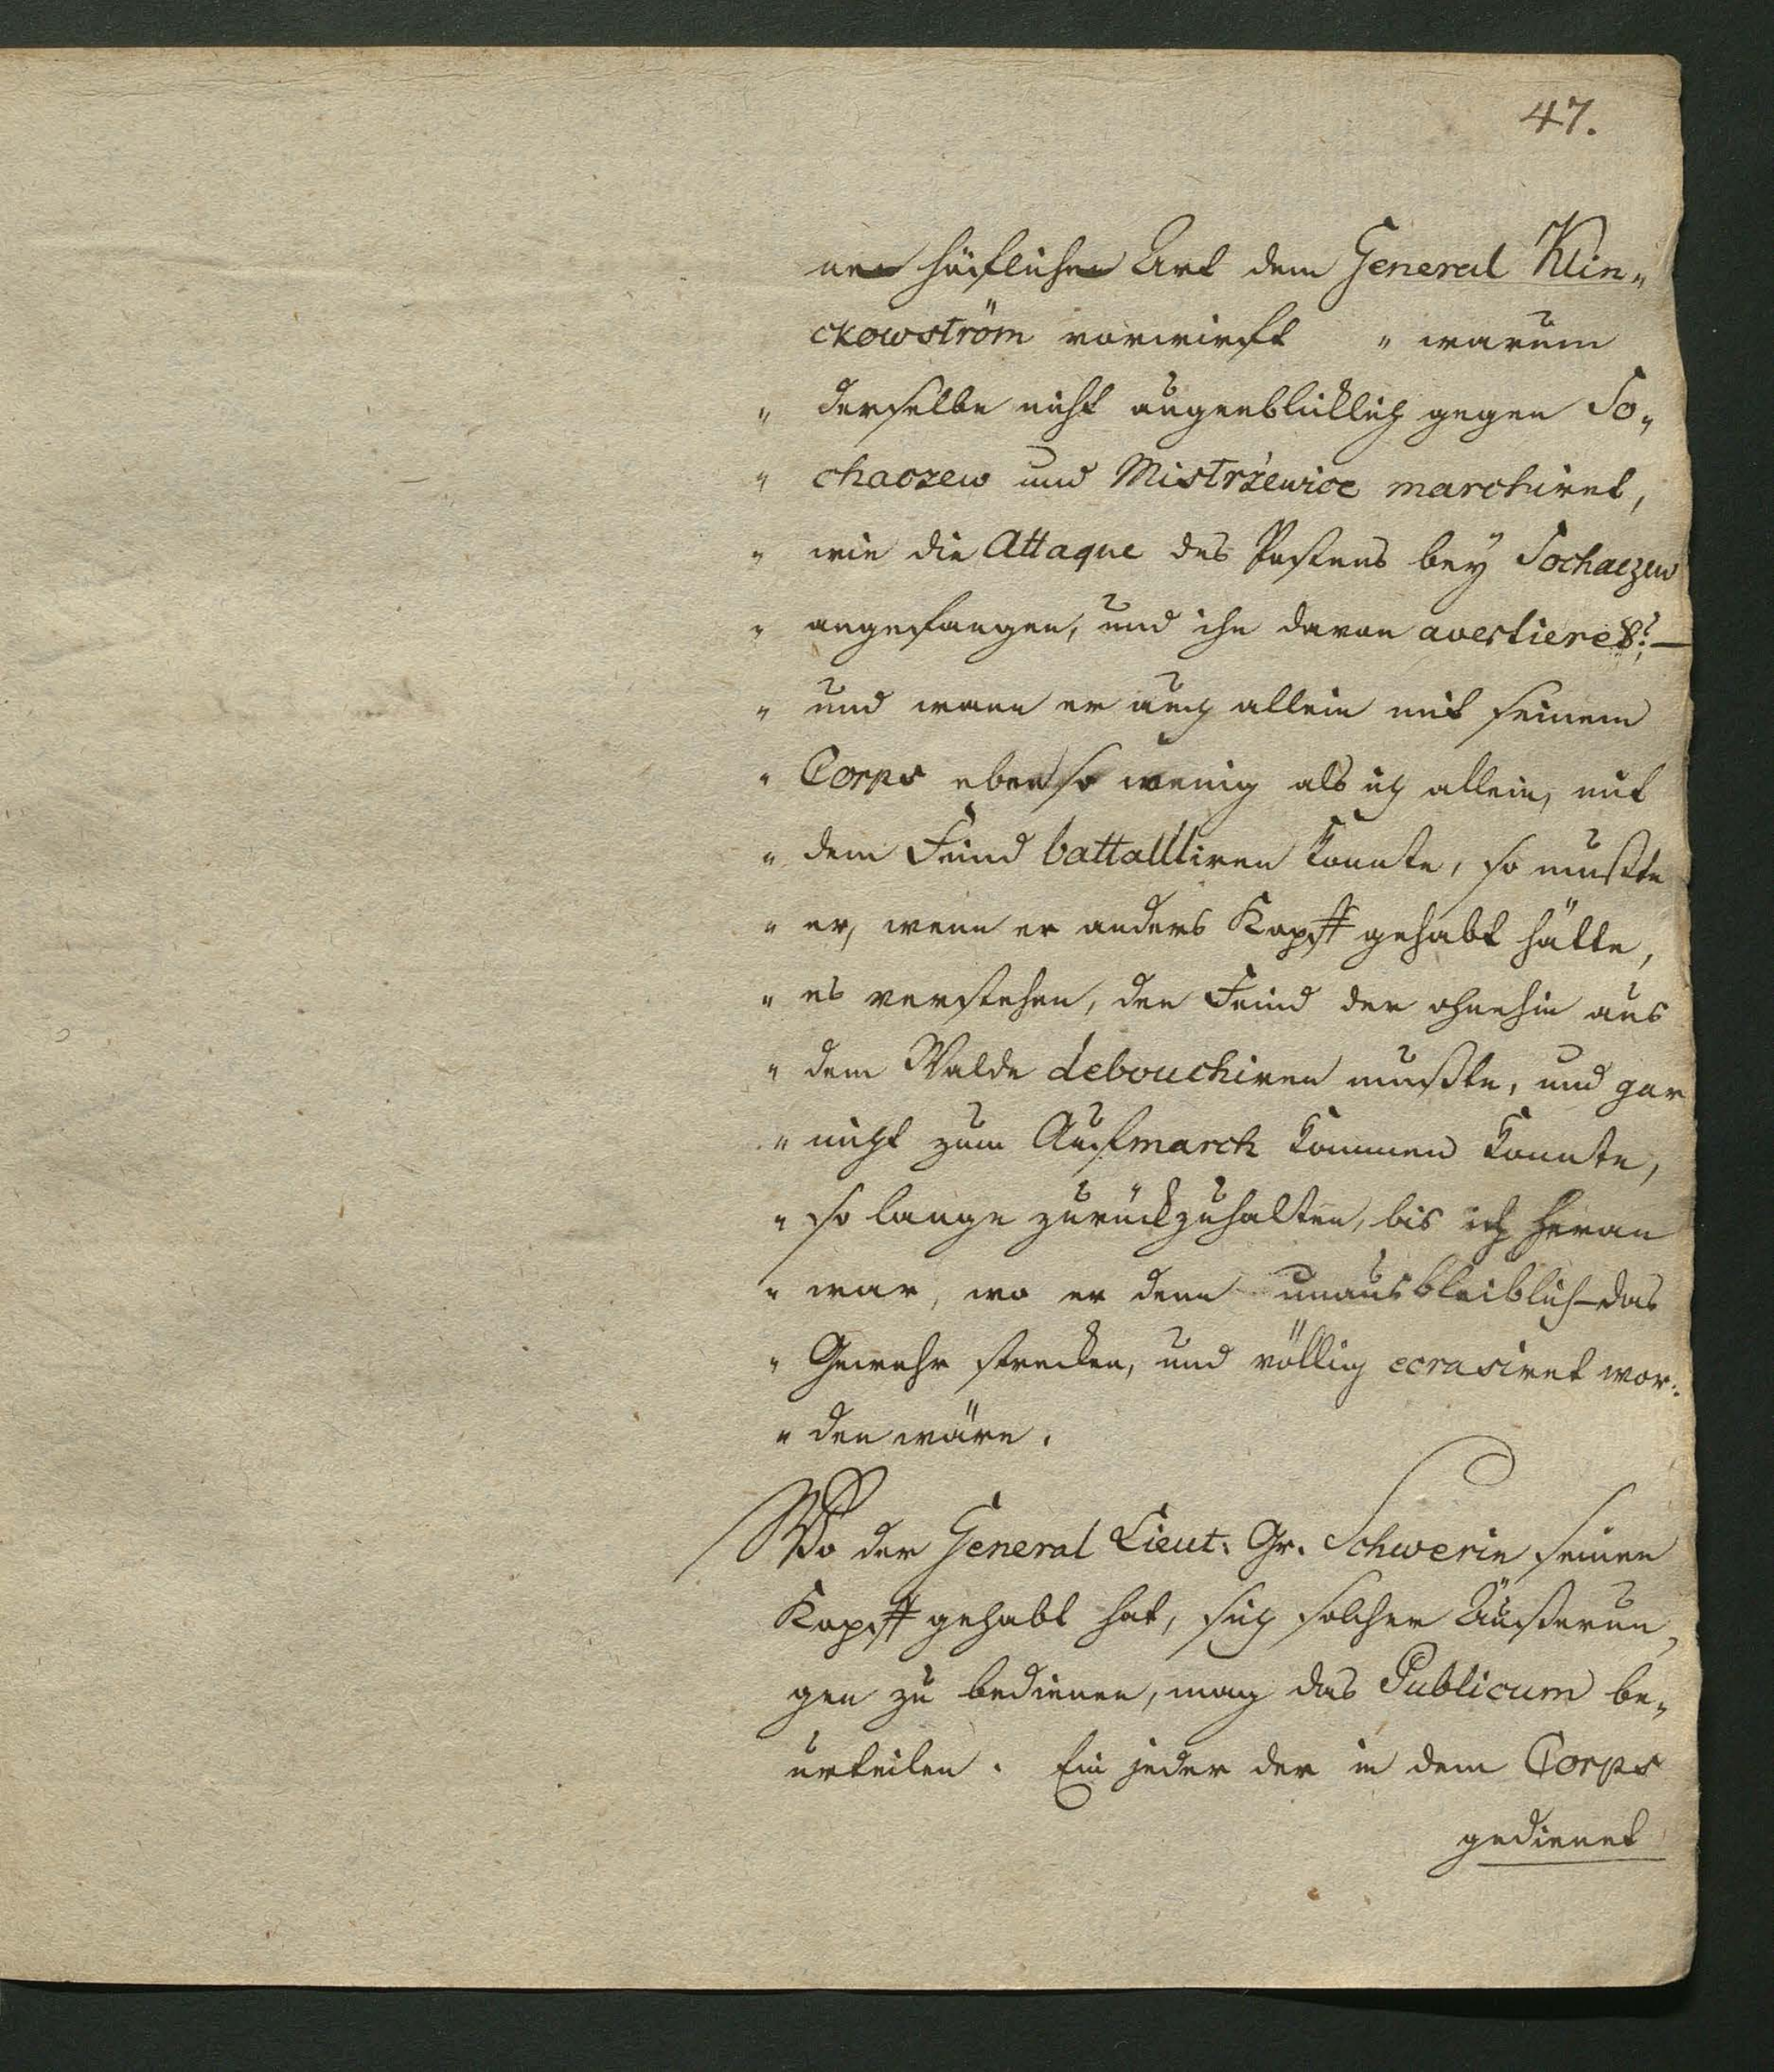 47.
ner höflichen Art dem General Klin„
ckowström vorwirft „ warum
„ derselbe nicht augenblicklich gegen So„
„ chaczew und Mistrżewice marchiret,
„ wie die Attaque des Postens bey Sochaczew
„ angefangen, und ihn davon avertieret? —
„ und wann er auch allein mit seinem
„ Corps eben so wenig als ich allein, mit
„ dem Feind battalliren konnte, so mußte
„ er, wenn er anders Kopff gehabt hätte,
„ es verstehen, den Feind der ohnehin aus
„ dem Walde debouchiren mußte, und gar
„ nicht zum Aufmarch kommen konnte,
„ so lange zurückzuhalten, bis ich heran
„ war, wo er denn unausbleiblich das
„ Gewehr strecken, und völlig ecrasiret wor„
„ den wäre.
Wo der General Lieut: Gr. Schwerin seinen
Kopff gehabt hat, sich solcher Äußerun„
gen zu bedienen, mag das Publicum be„
urteilen. Ein jeder der in dem Corps
gedienet